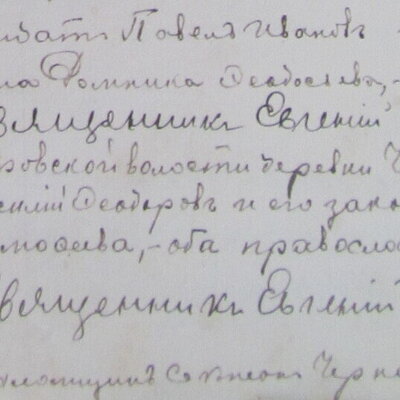 лдатъ Павелъ Ивановъ
на Домника Ѳеодосьева,-
священникъ Евгеній
ровской волости деревни Ч
силій Ѳеодоровъ и его зако
имоѳеева, - оба правосла
Священникъ Евгеній
Черн